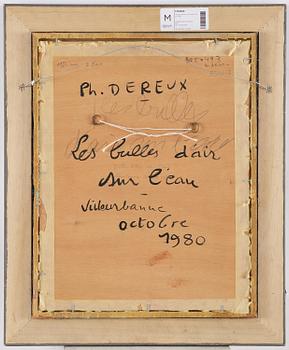 M
Ph. DEREUX
Les bulles
Les bulles d'air
sur l'eau
Villeurbanne
octobre
1980